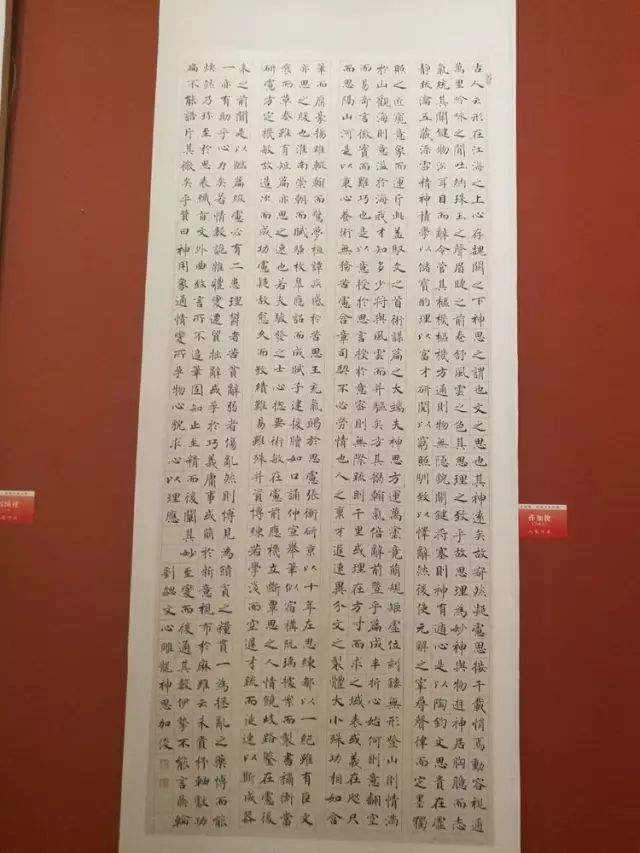 古人云形在江海之上心存魏闕之下神思之謂也文之思也其神遠矣故寂然凝慮思接千載悄焉動容視通
萬里吟咏之間吐納珠玉之聲眉睫之前卷舒風雲之色其思理之致乎故思理為妙神與物遊神居胸臆而志
氣統其關鍵物沿耳目而辭令管其樞機樞機方通則物無隱貌關鍵將塞則神有遁心是以陶鈞文思貴在虛
靜疏瀹五藏澡雪精神積學以儲寶酌理以富才研閱以窮照馴致以懌辭然後使元解之宰尋聲律而定墨獨
照之匠窺意象而運斤此蓋馭文之首術謀篇之大端夫神思方運萬塗競萌規矩虛位刻鏤無形登山則情滿
於山觀海則意溢於海我才知多少將與風雲而并驅矣方其搦翰氣倍辭前暨乎篇成半折心始何則意翻空
而易奇言徵實而難巧也是以意授於思言授於意密則無際疏則千里或理在方寸而求之域表或義在咫尺
而思隔山河是以秉心養術無務苦慮含章司契不必勞情也人之稟才遲速異分文之製體大小殊功相如含
筆而腐毫揚雄輟翰而驚夢桓譚疾感於苦思王充氣竭於思慮張衡研京以十年左思練都以一紀雖有巨文
亦思之緩也淮南崇朝而賦騷枚皋應詔而成賦子建援牘如口誦仲宣舉筆似宿構阮瑀據案而製書禰衡當
食而草奏雖有短篇亦思之速也若夫駿發之士心總要術敏在慮前應機立斷覃思之人情饒歧路鑒在慮後
研慮方定機敏故造次而成功慮疑故愈久而致績難易雖殊并資博練若學淺而空遲才疏而徒速以斯成器
未之前聞是以臨篇綴慮必有二患理鬱者苦貧辭弱者傷亂然則博見為饋貧之糧貫一為拯亂之藥博而能
一亦有助乎心力矣若情數詭雜體變遷貿拙辭或孕於巧義庸事或萌於新意視布於麻雖云未貴杼軸獻功
煥然乃珍至於思表纖旨文外曲致言所不追筆固知止至精而後闡其妙至變而後通其數伊摯不能言鼎輪
扁不能語斤其微矣乎贊曰神用象通情變所孕物心貌求心以理應
劉勰文心雕龍神思加俊
孙加俊